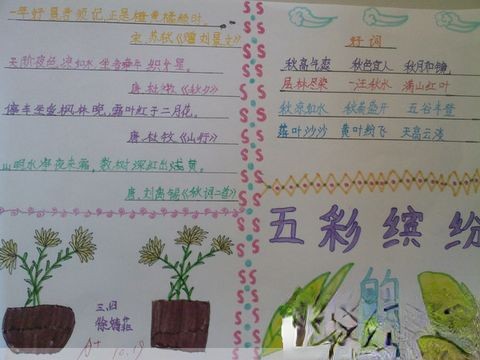 一年好景君须记,正是橙黄橘绿时。
宋.苏轼《赠刘景文》
天阶夜色凉如水,坐看牵牛织女星。
唐.杜牧《秋夕》
停车坐爱枫林晚,霜叶红于二月花。
唐.杜牧《山行》
山明水净夜来霜,数树深红出浅黄。
唐.刘禹锡《秋词二首》
三.四
徐
A+ 10.19
好词
秋高气爽 秋色宜人 秋月如镜
层林尽染 一汪秋水 满山红叶
秋凉如水 秋菊盛开 五谷丰登
落叶沙沙 黄叶纷飞 天高云淡
五彩缤纷
的